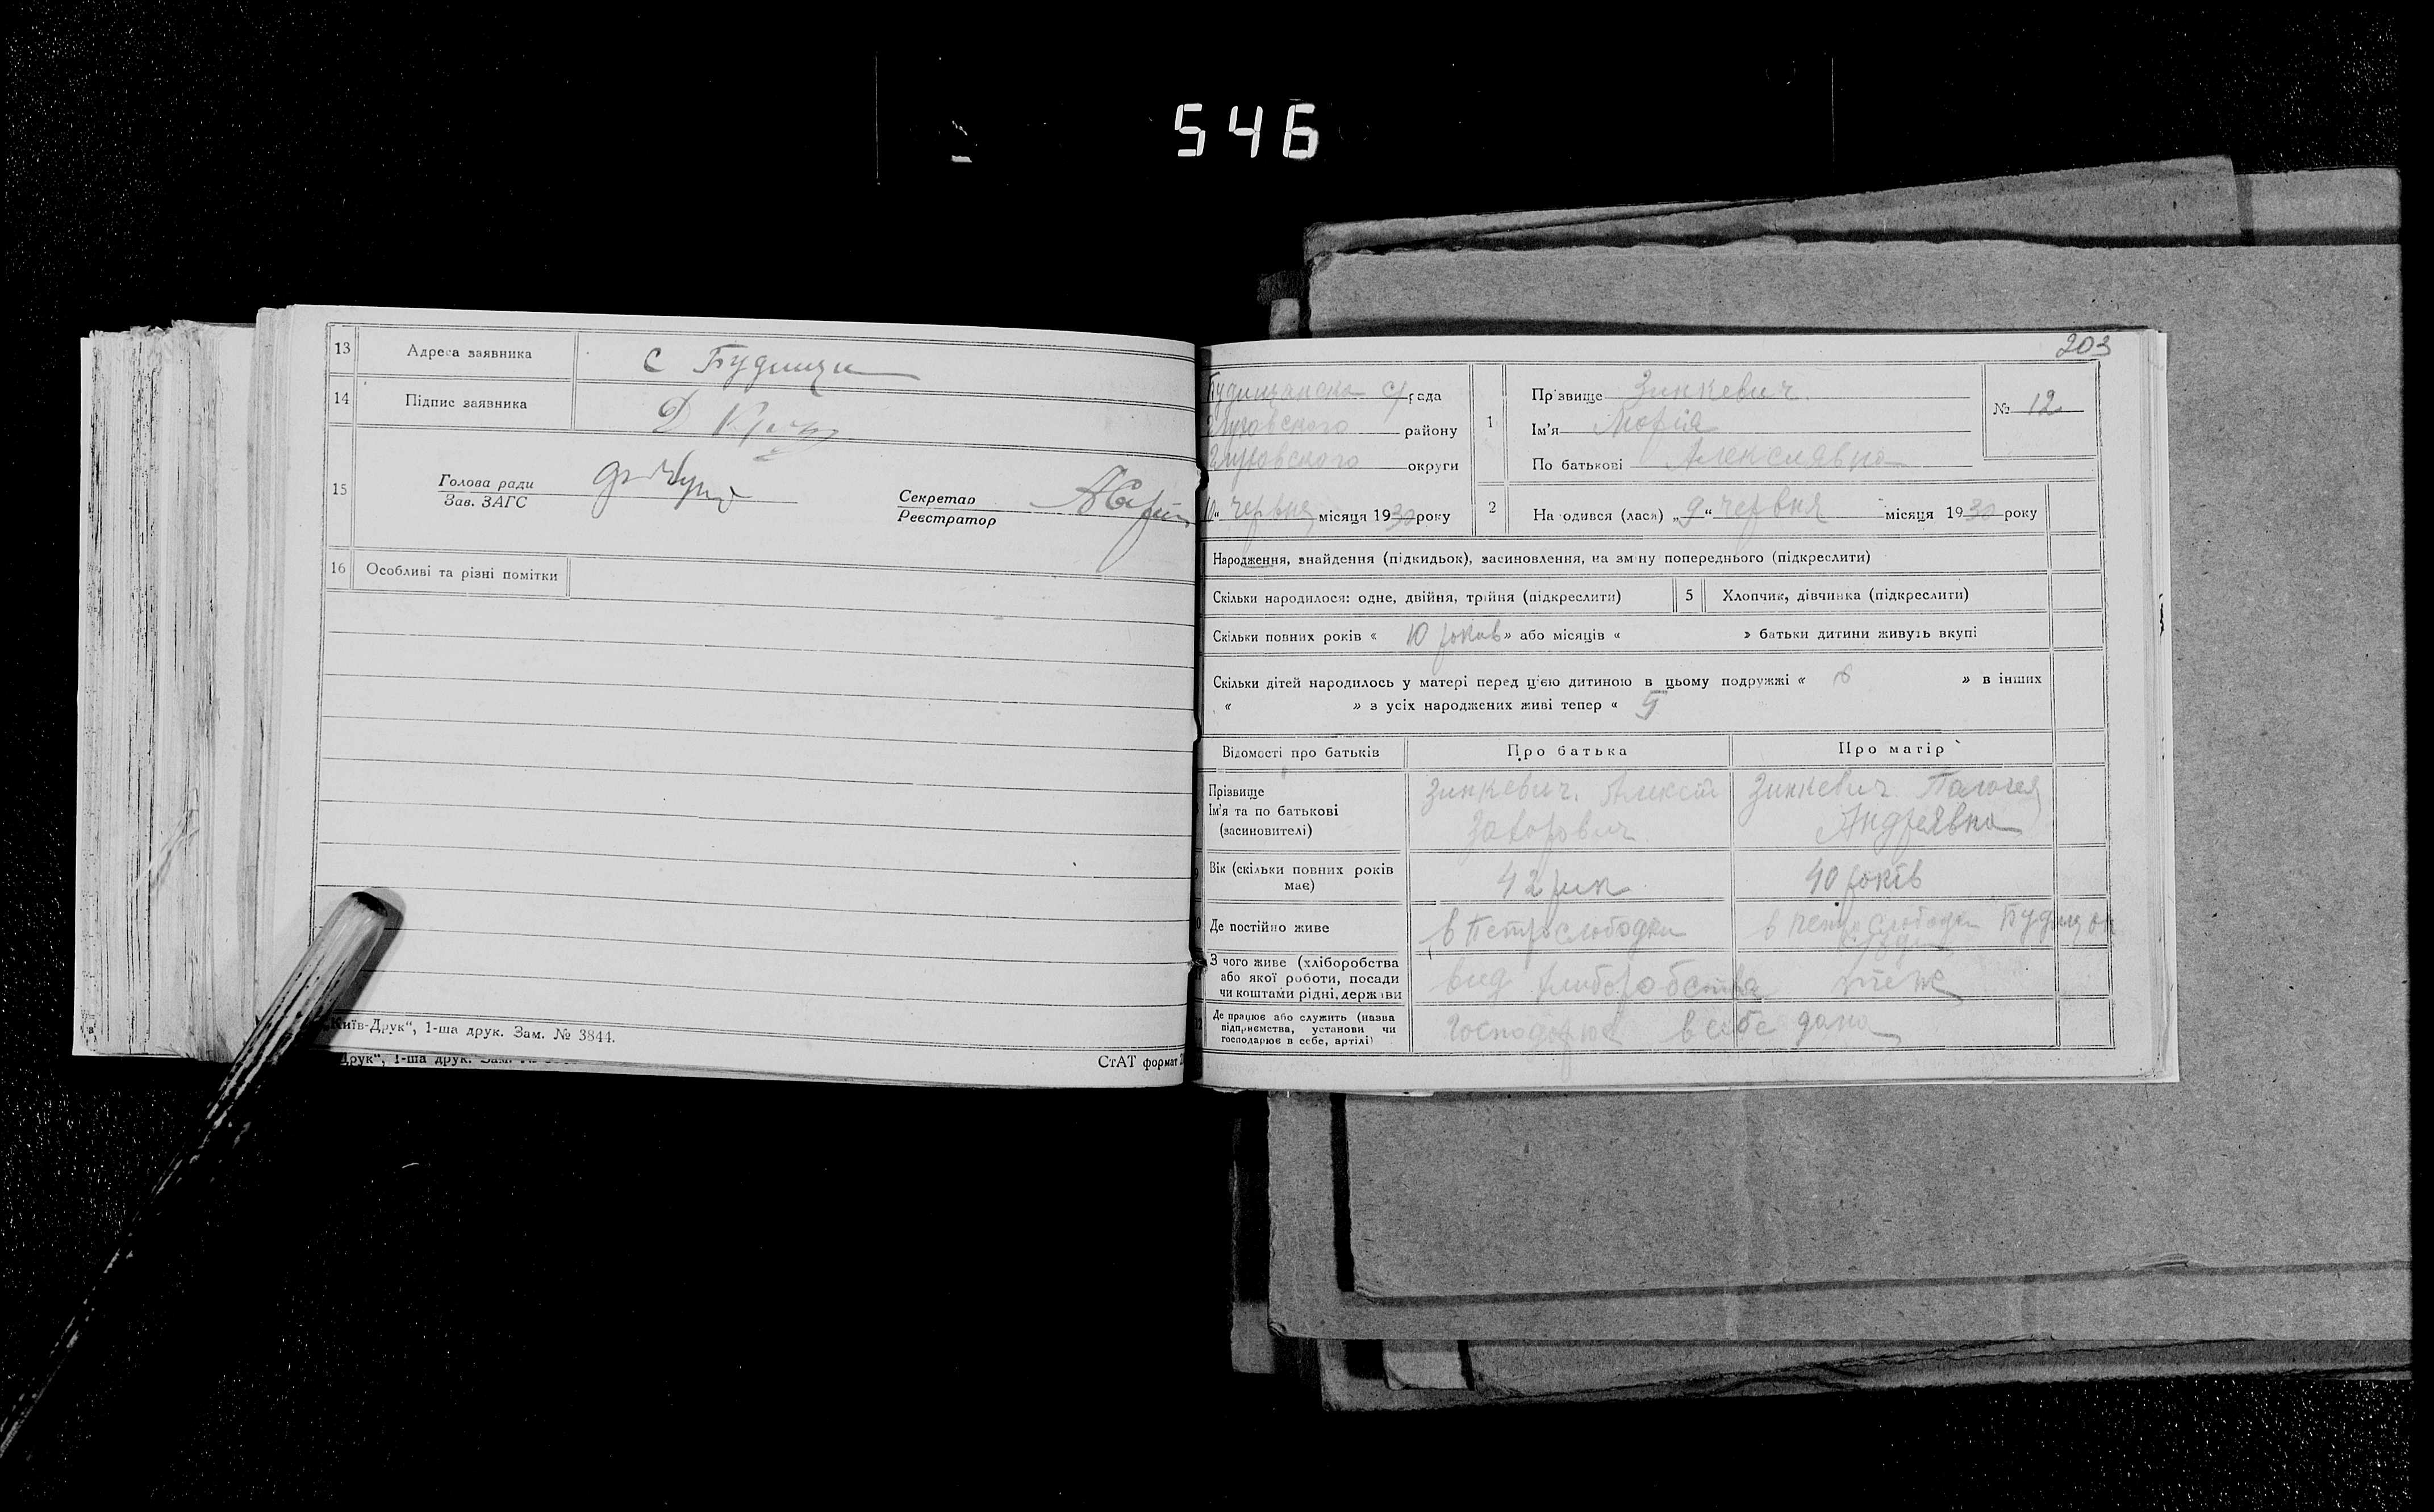 546
13 Адреса заявника с Будищи
14 Підпис заявника Д
15 Голова ради
Зав. ЗАГС
Секретар
Реєстратор
16 Особливі та різні помітки
Київ-Друк“, 1-ша друк. Зам. № 3844.
Друк“, 1-ша друк.
СтАТ формат
203
Будищанська с/рада
Глуховского району
Глуховского округи
10“ червня місяця 1930 року
1 Прізвище Зинкевич.
Ім'я Морія
По батькові Алексиявна
№ 12
2 Народився (лася) „9“ червня місяця 1930 року
Народження, знайдення (підкидьок), засиновлення, на зміну попереднього (підкреслити)
Скільки народилося: одне, двійня, трійня (підкреслити) 5 Хлопчик, дівчинка (підкреслити)
Скільки повних років « 10 роков » або місяців « » батьки дитини живуть вкупі
Скільки дітей народилось у матері перед цією дитиною в цьому подружжі « 6 » в інших
« » з усіх народжених живі тепер « 5
Відомості про батьків Про батька Про матір
Прізвище
Ім'я та по батькові
(засиновителі)
Зинкевич. Алексій
Захорович
Зинкевич
Андреявна
Вік (скільки повних років
має)
42 рик
40 років
Де постійно живе в Петрослободки в Петр слободки
З чого живе (хліборобства
або якої роботи, посади
чи коштами рідні, держави
вид хлиборобства теж
Де працює або служить (назва
підприємства, установи чи
господарює в себе, артілі)
господорює в себе дома